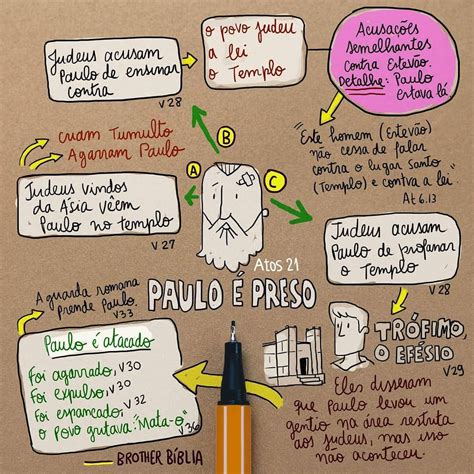 Judeus acusam
Paulo de ensinar
contra
V 28
o povo judeu
a lei
o Templo
Acusações
semelhantes
contra Estevão.
Detalhe: Paulo
estava lá
criam Tumulto
Agarram Paulo
B
A
C
"Este homem (Estevão)
não cessa de falar
contra o lugar santo
(Templo) e contra a lei.
At 6.13
Judeus vindos
da Ásia vêem
Paulo no templo
V 27
Judeus acusam
Paulo de profanar
o Templo
V 28
Atos 21
PAULO É PRESO
A guarda romana
prende Paulo.
V33
TRÓFIMO,
O EFÉSIO
V29
Paulo é atacado
Foi agarrado, V30
Foi expulso, V30
Foi espancado, V32
o Povo gritava: "Mata-o"
V36
Eles disseram
que Paulo levou um
gentio na área restrita
aos judeus, mas isso
não aconteceu.
BROTHER BÍBLIA